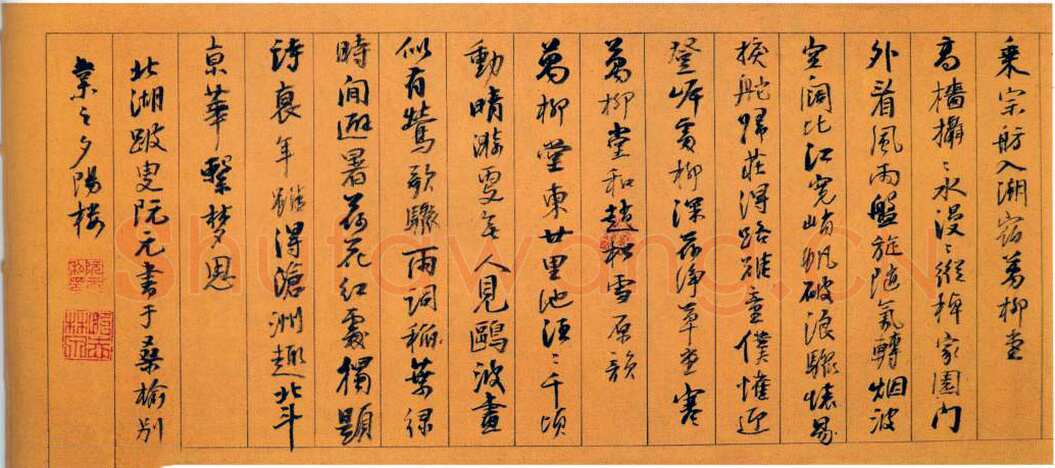 乘宗舫入湖宿萬柳堂
高檣攝〻水漫〻縱棹家園門
外看風雨盤旋隨氣轉烟波
空闊比江寬峭帆破浪易
捩舵歸莊得路難童僕懽迎
登岸處柳深荷淨草堂寒
萬柳堂和趙松雪原韻
萬柳堂東廿里池汪〻千頃
動晴漪更無人見鷗波畫
似有鶯歌驟雨詞稲葉緑
時間避暑荷花紅處獨題
詩衰年雖得滄洲趣北斗
京華繫夢思
北湖跛叟阮元書于桑榆別
業之夕陽樓
Shutawang.CN